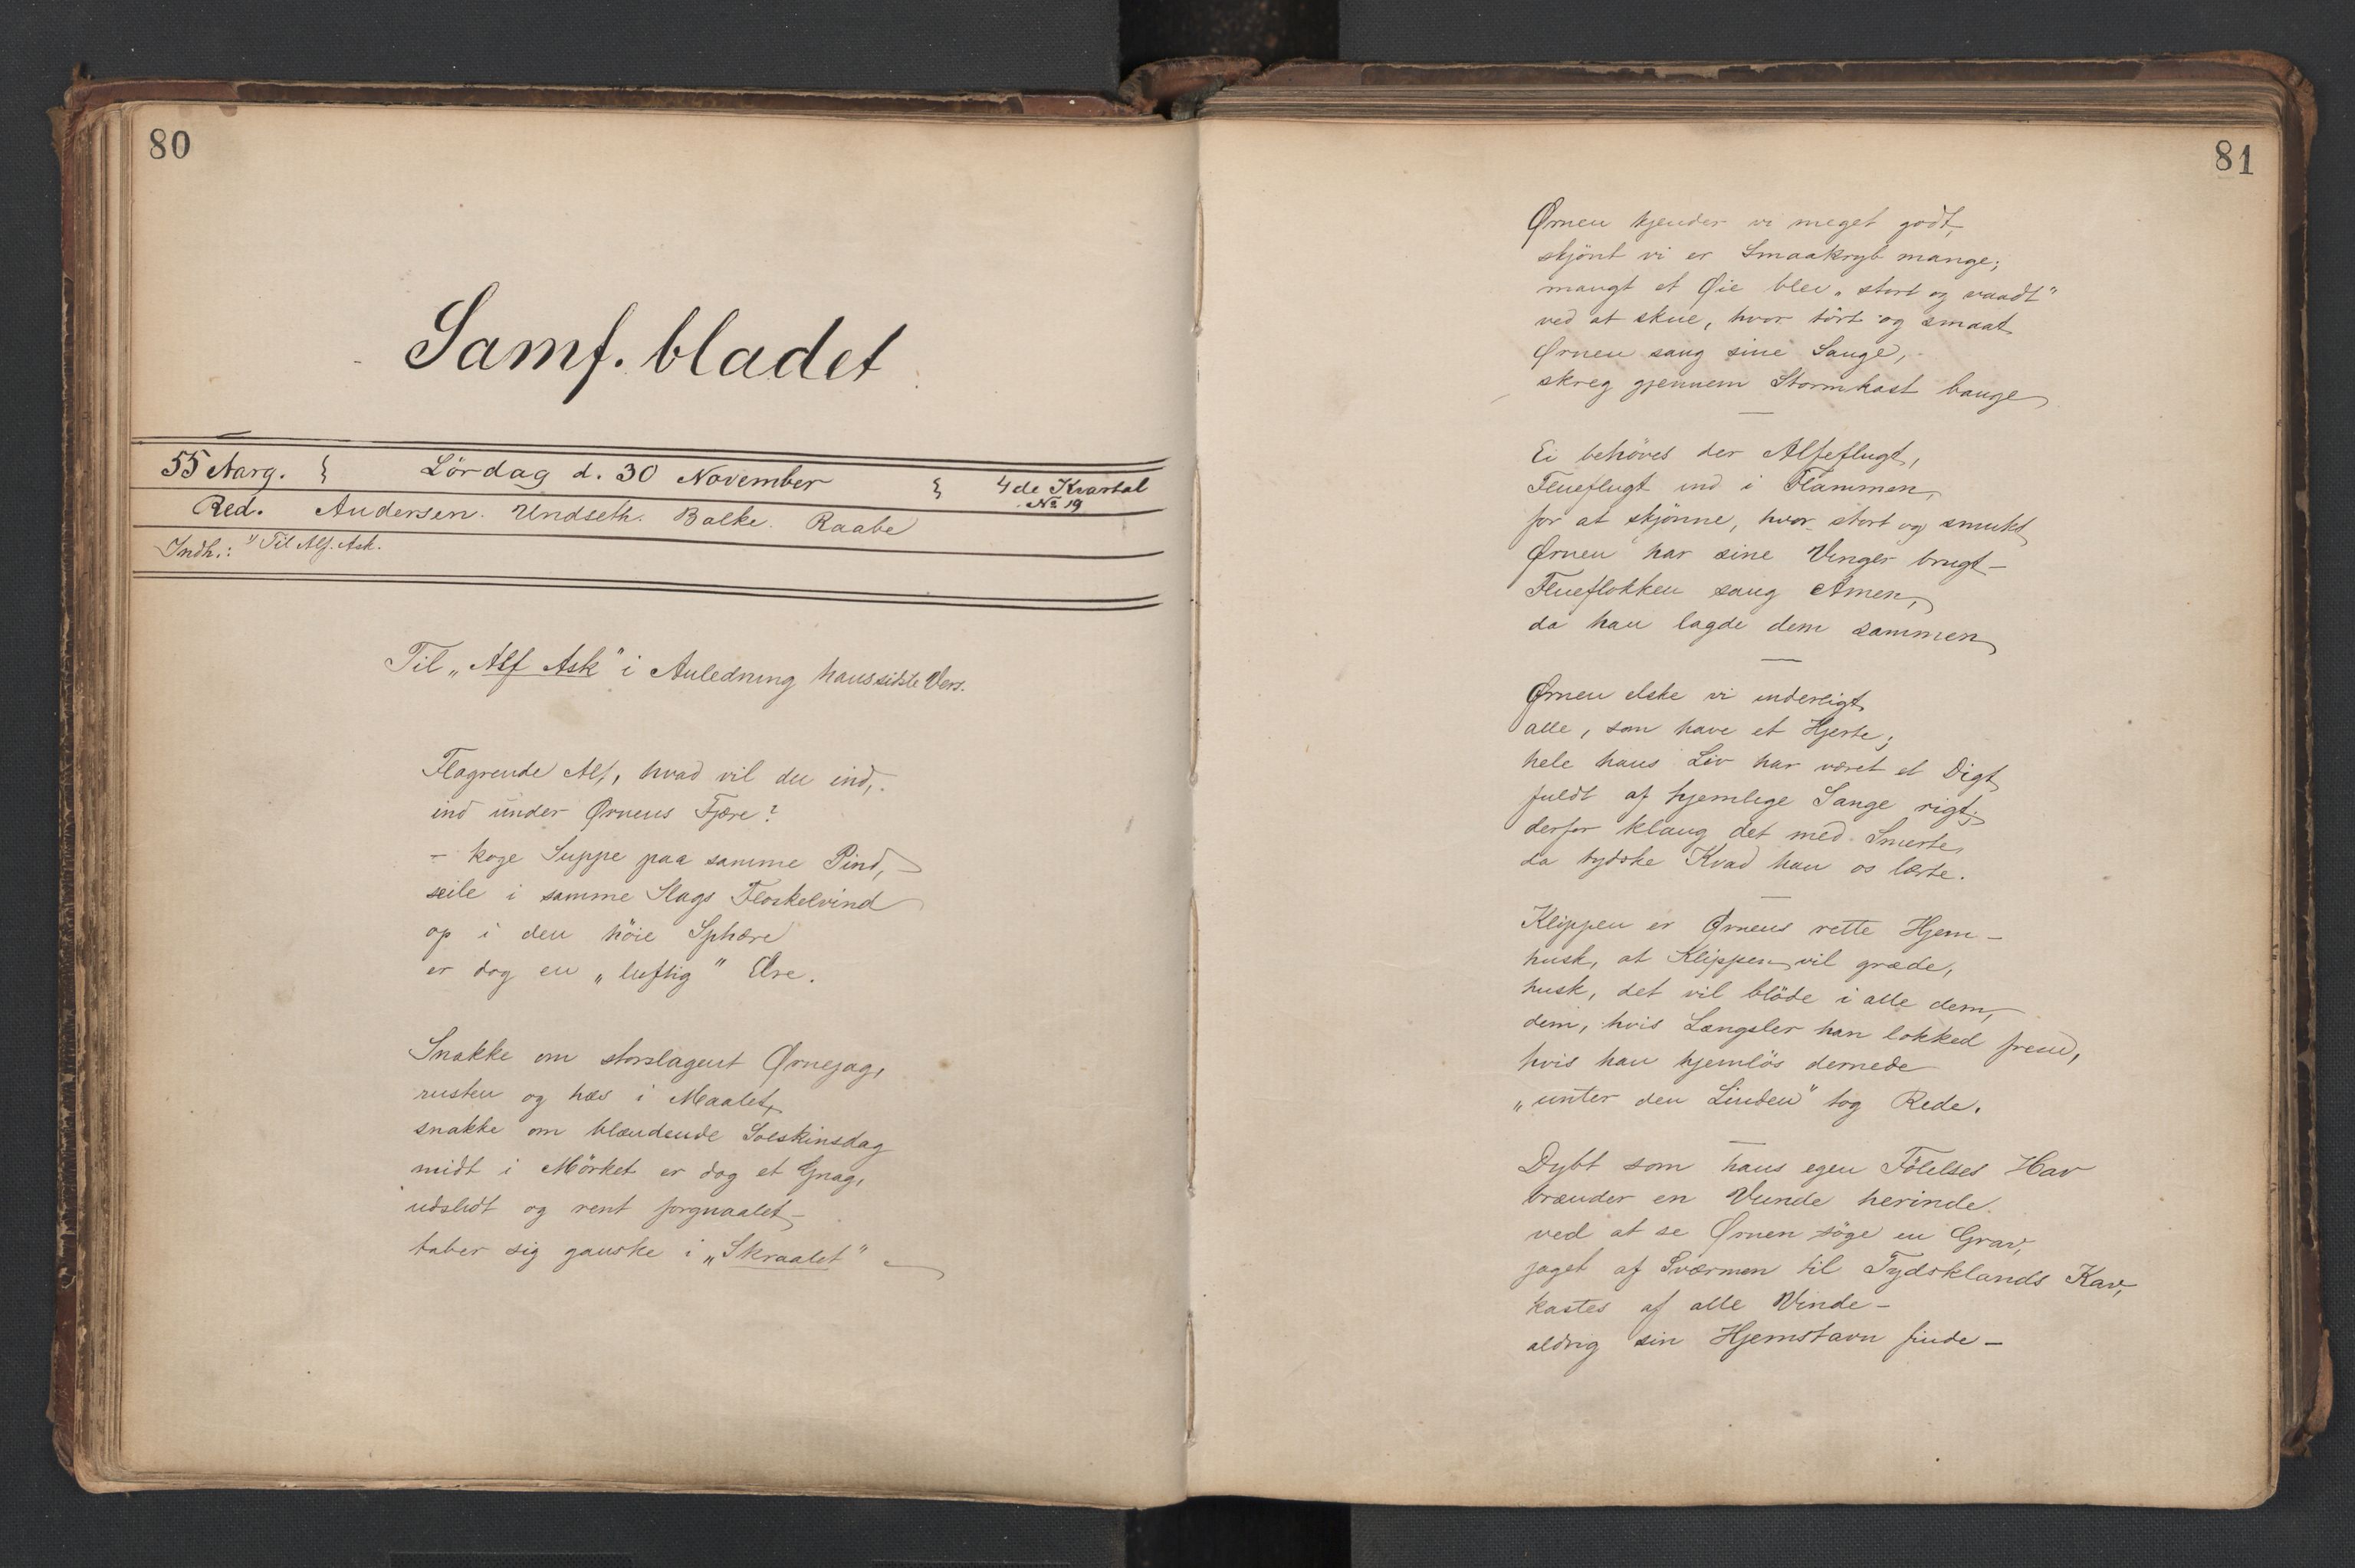 80
Samf. bladet
55 Aarg. Lördag d. 30 November 4de Kvartal
No 19
Red. Andersen. Undseth. Balke. Raabe
Indh.: "Til Alf. Ask.
Til „Alf Ask" i Anledning hans sidste Vers.
Flagrende Alf, hvad vil du ind,
ind under Ørnens Fjære?
– koge Suppe paa samme Pind,
seile i samme Slags Floskelvind
op i den höie Sphære
er dog en „luftig" Ære.
Snakke om storslagent Ørnejag,
rusten og hæs i Maalet,
snakke om blændende Solskinsdag
midt i Mörket er dog et Gnag,
udslidt og rent forgnaalet –
taber sig ganske i „Skraalet"
81
Ørnen kjender vi meget godt,
skjönt vi er Smaakryb mange;
mangt et Øie blev „stort og vaadt"
ved at skue, hvor tört og smaat
Ørnen sang sine Sange,
skreg gjennem Stormkast bange
Ei behöves der Alfeflugt,
Flueflugt ind i Flammen,
for at skjönne, hvor stort og smukt
Ørnen har sine Vinger brugt –
Flueflokken sang Amen,
da han lagde dem sammen
Ørnen elske vi inderligt
alle, som have et Hjerte;
hele hans Liv har været et Digt
fuldt af hjemlige Sange rigt;
derfor klang det med Smerte,
da tydske Kvad han os lærte.
Klippen er Ørnens rette Hjem –
husk, at Klippen vil græde,
husk, det vil blöde i alle dem,
dem, hvis Længsler han lokked frem,
hvis han hjemlös dernede
„unter den Linden" tog Rede.
Dybt som hans egen Fölelses Hav
brænder en Vunde herinde
ved at se Ørnen söge en Grav,
jaget af Sværmen til Tydsklands Kav,
kastes af alle Vinde –
aldrig sin Hjemstavn finde –